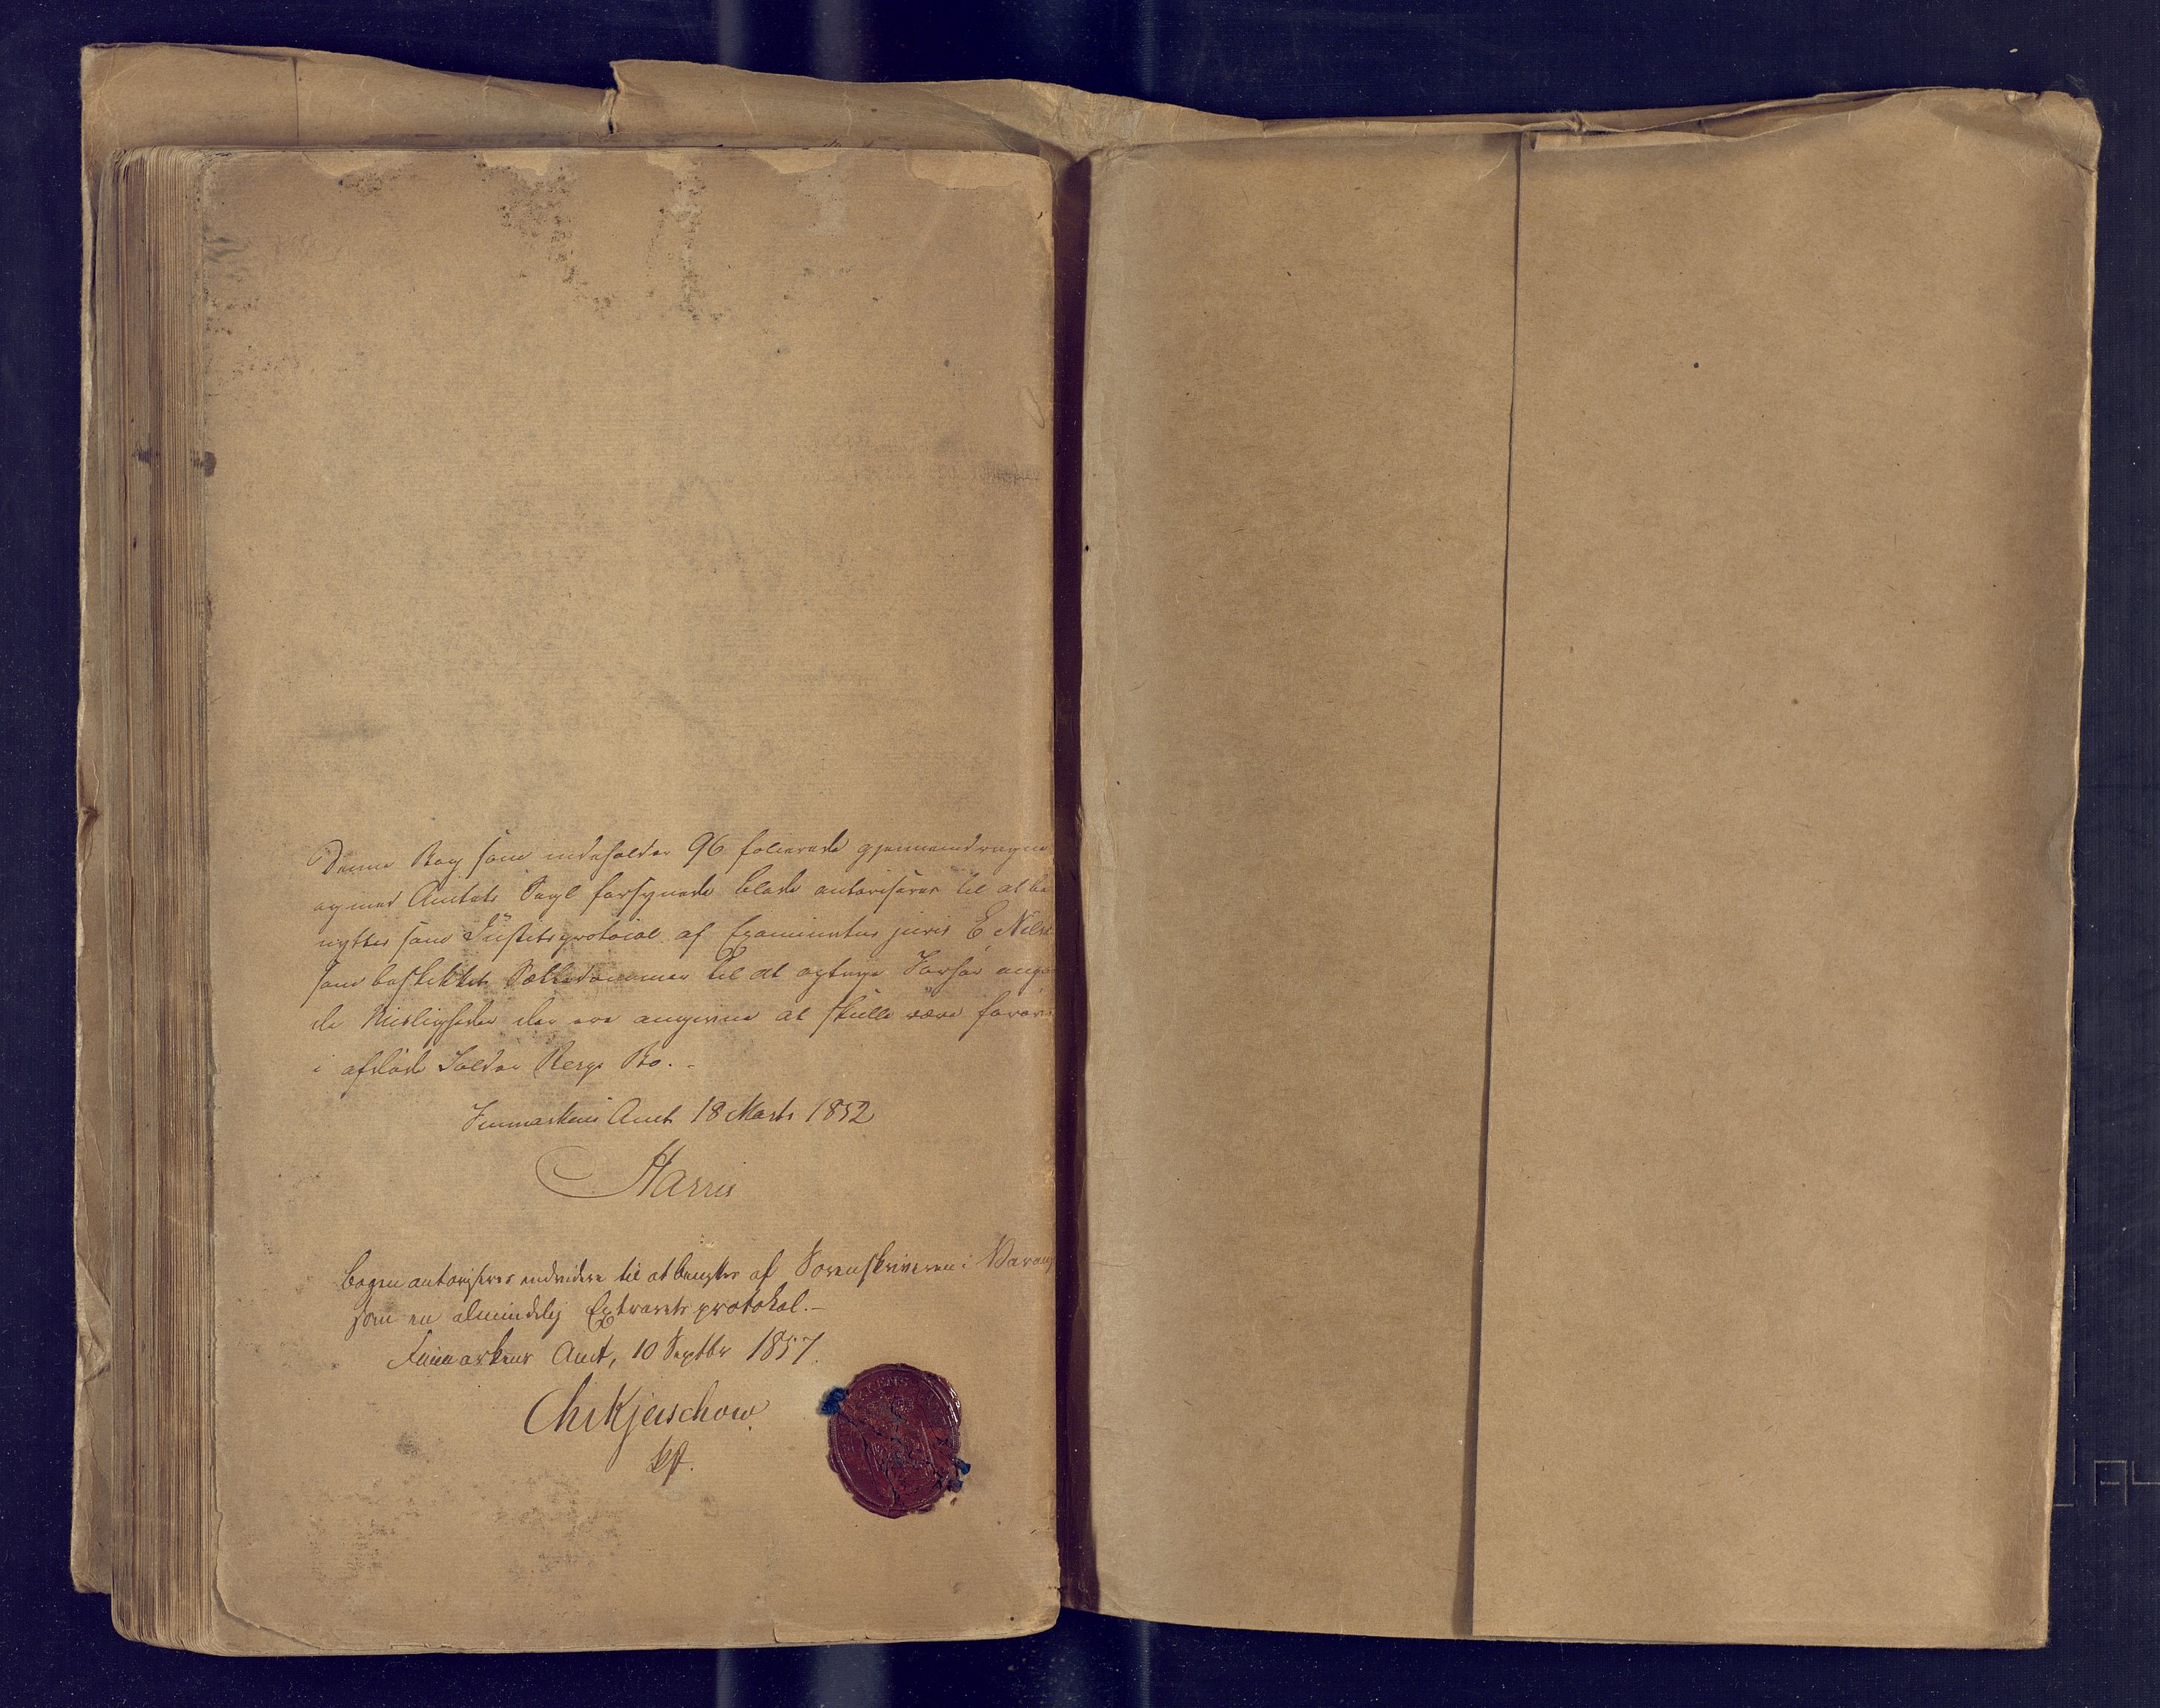 Denne Bog som indeholder 96 folierede gjennemdragne
og med Amtets Segl forsynede blade autoriseres til at be
nyttes som Justitsprotocol af Examinatus juris E Niels
som beskikket Sættedommer til at optage Forhør angå
de Misligheder der ere angivne at skulle være
i afdøde Bergs Bo. -
Finmarkens Amt 18 Marts 1852
Harris
Bogen autoriseres endvidere til at benyttes af Sorenskriveren i Varang
som en almindelig Extraretsprotokol. -
Finmarkens Amt, 10 Septbr 1857.
Kjerschow
kst.